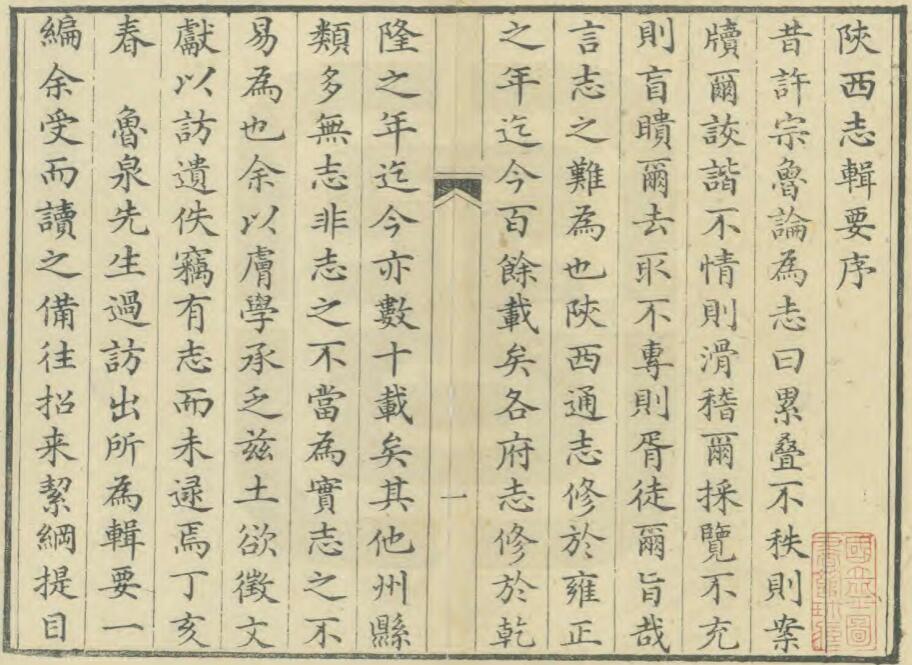 陝西志輯要序
昔許宗魯論為志曰累疊不秩則案
牘爾詼諧不情則滑稽爾採覽不充
則盲瞶爾去取不專則胥徒爾旨哉
言志之難為也陝西通志修於雍正
之年迄今百餘載矣各府志修於乾
一
隆之年迄今亦數十載矣其他州縣
類多無志非志之不當為實志之不
易為也余以膚學承乏茲土欲徵文
獻以訪遺佚竊有志而未逯焉丁亥
春 魯泉先生過訪出所為輯要一
編余受而讀之備往招来絜綱提目